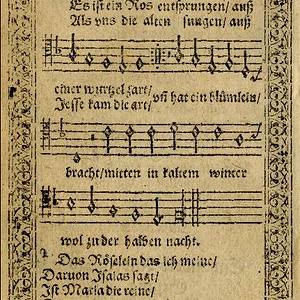 Es ist ein Ros entsprungen/ auß
Als vns die alten sungen/ auß
einer wurtzel zart/
Jesse kam die art/ vñ hat ein blümlein/
bracht/ mitten in kaltem winter
wol zu der halben nacht.
Das Röselein das ich meine/
Daruon Isaias sagt/
Ist Maria die reine/